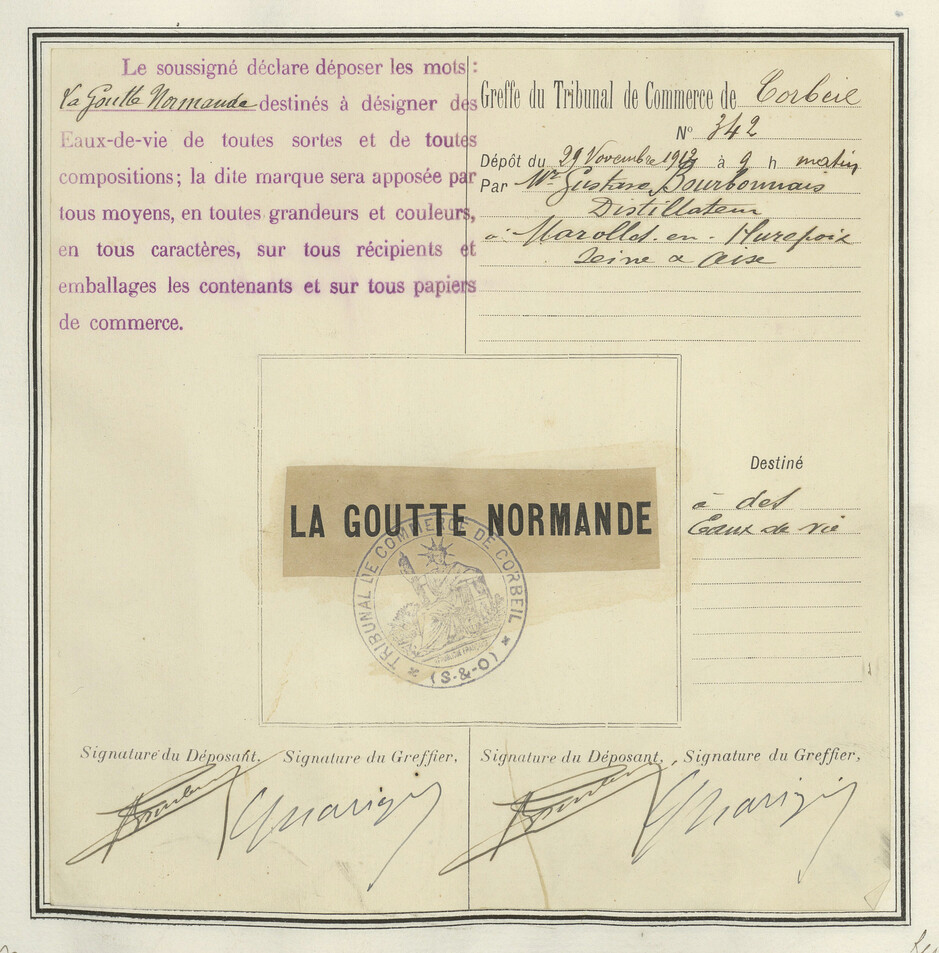 Le soussigné déclare déposer les mots :
La Goutte Normande destinés à désigner des
Eaux-de-vie de toutes sortes et de toutes
compositions; la dite marque sera apposée par
tous moyens, en toutes grandeurs et couleurs,
en tous caractères, sur tous récipients et
emballages les contenants et sur tous papiers
de commerce.
Greffe du Tribunal de Commerce de Corbeil
N° 342
Dépôt du 29 Novembre à 9 h matin
Par Mr Gustave Bourbonnais
Distillateur
à Marolles-en-Hurepoix
Seine & Oise
LA GOUTTE NORMANDE
TRIBUNAL DE COMMERCE DE CORBEIL
(S-&-O)
RÉPUBLIQUE FRANÇAISE
Destiné
à des
Eaux de vie
Signature du Déposant, Signature du Greffier,
Signature du Déposant, Signature du Greffier,